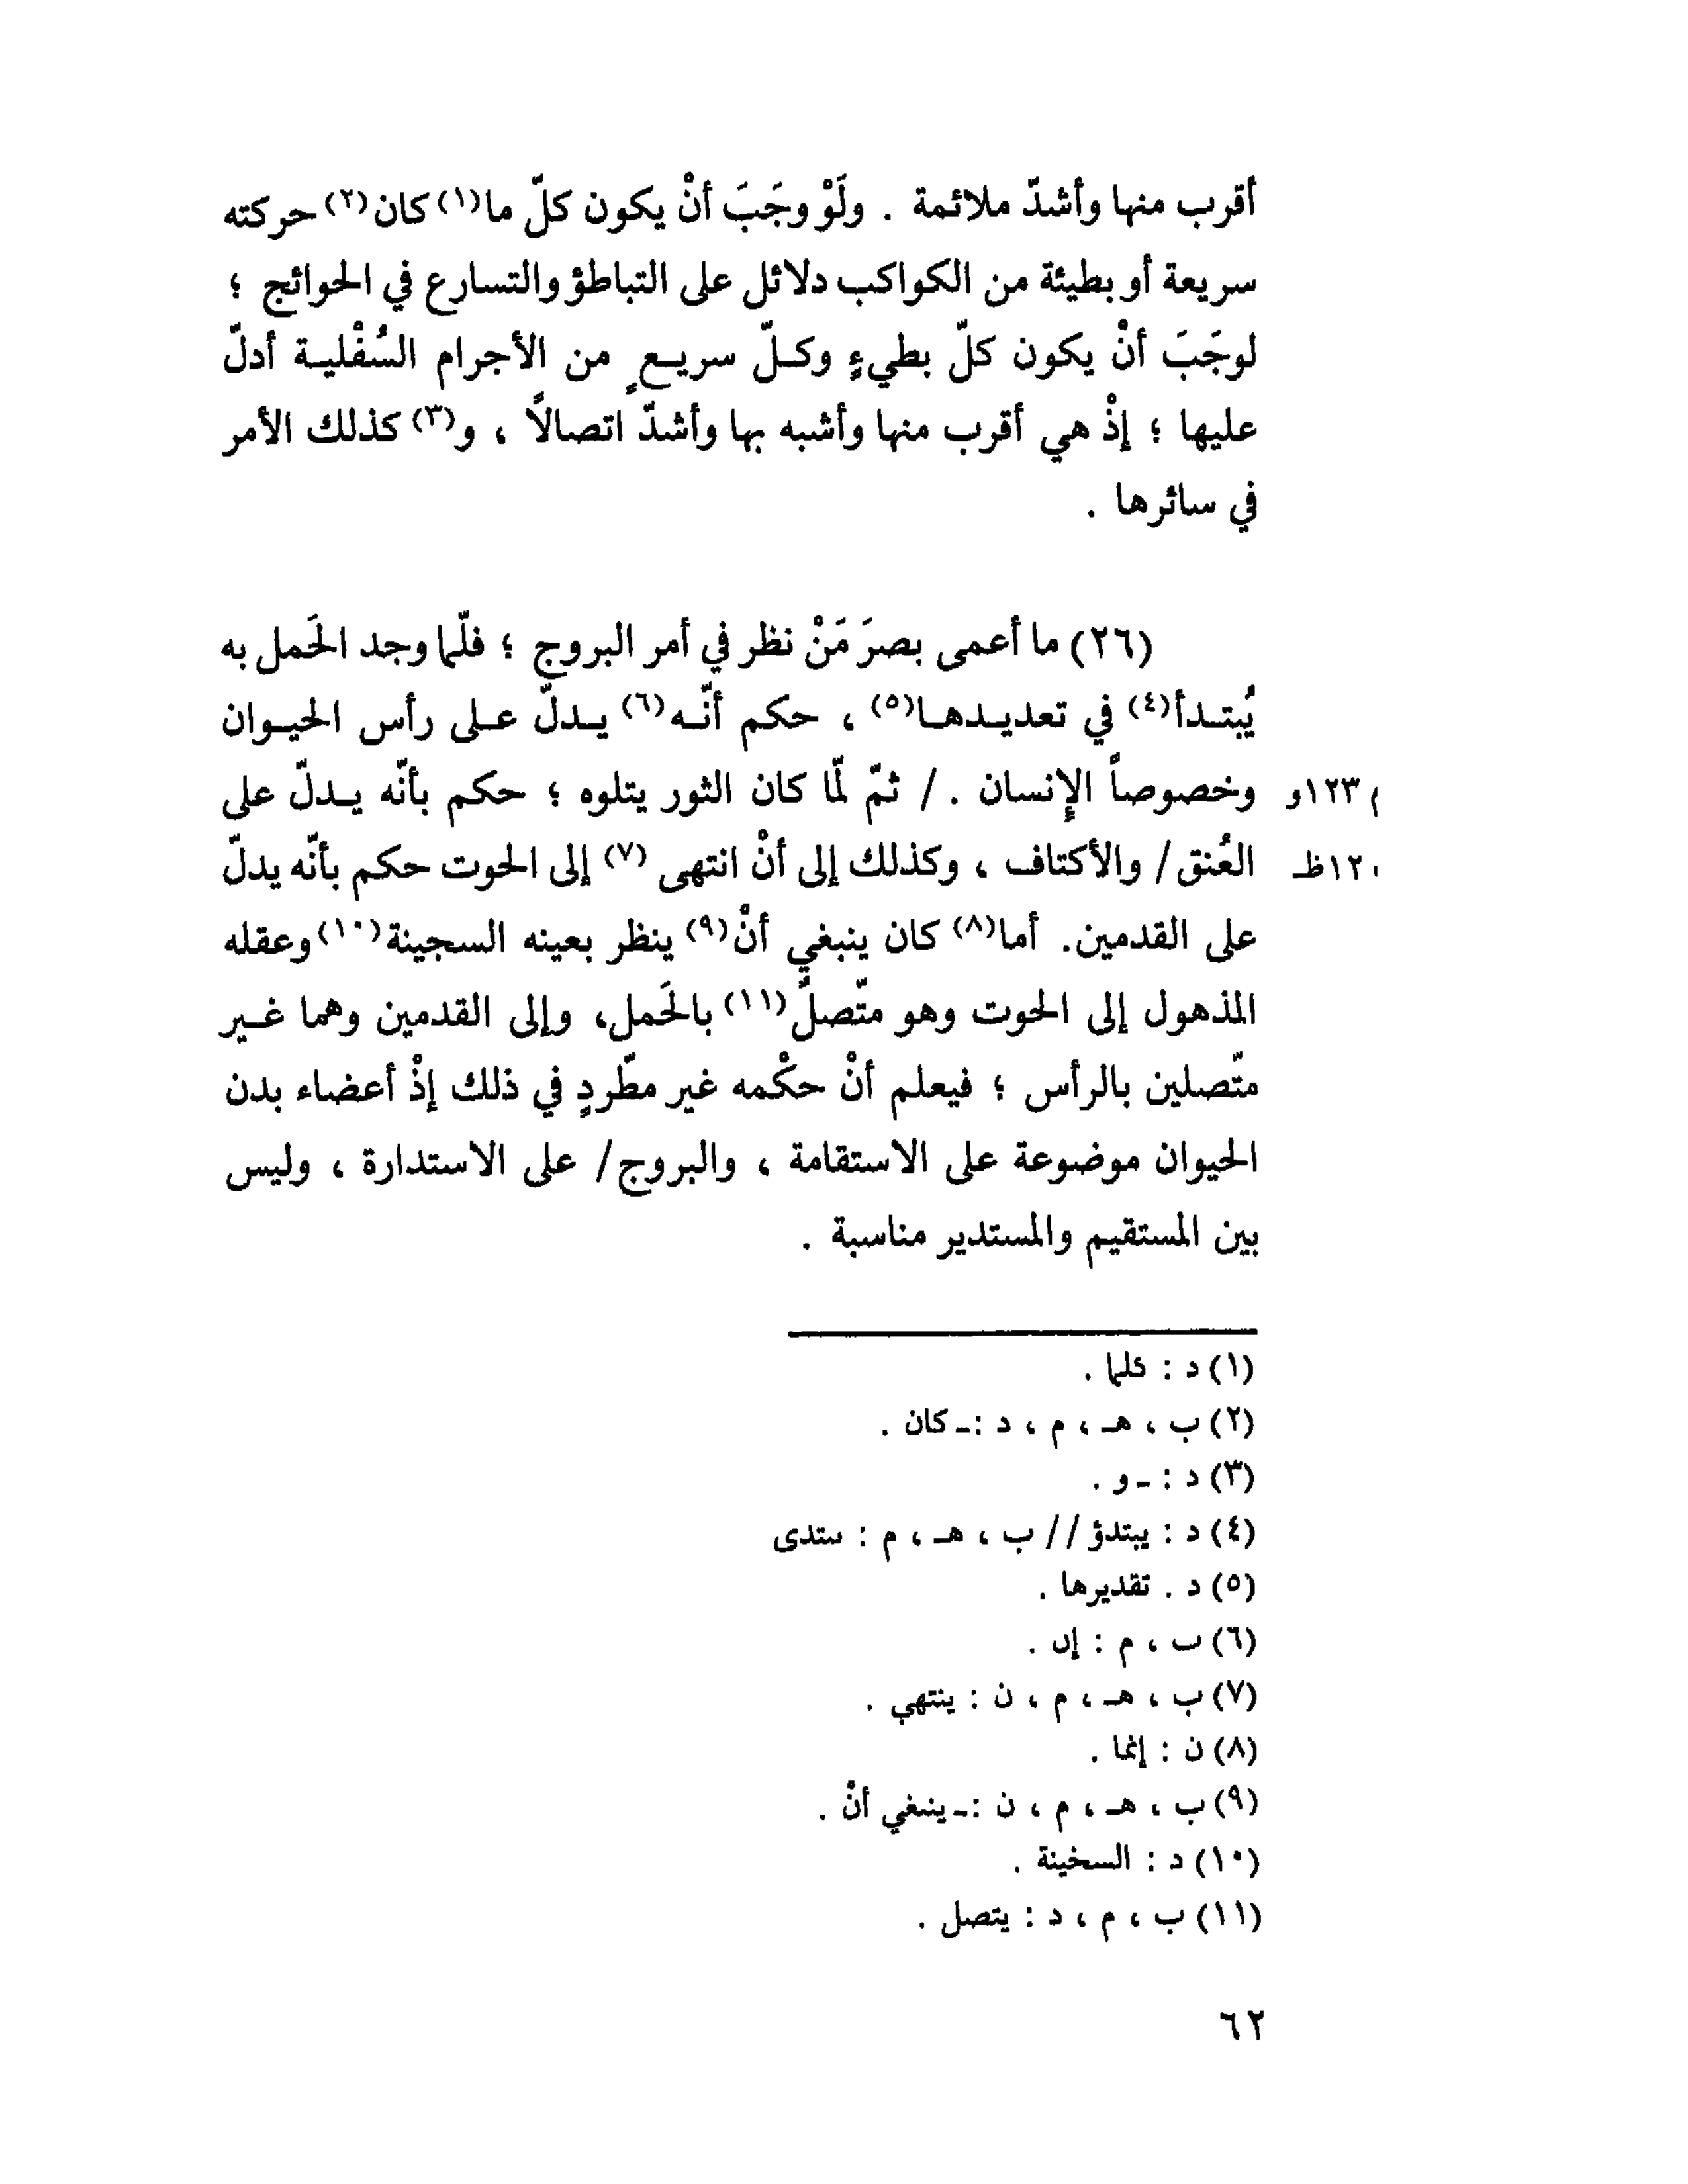 أقرب منها وأشدّ ملائمة . ولَوْ وجَبَ أنْ يكون كلّ ما(١) كان(٢) حركته
سريعة أو بطيئة من الكواكب دلائل على التباطؤ والتسارع في الحوائج ؛
لوجَبَ أنْ يكون كلّ بطيءٍ وكلّ سريعٍ من الأجرام السُفْلية أدلّ
عليها ؛ إذْ هي أقرب منها وأشبه بها وأشدّ اتصالاً ، و(٣) كذلك الأمر
في سائرها .
(٢٦) ما أعمى بصرَ مَنْ نظر في أمر البروج ؛ فلّما وجد الحَمل به
يُبتدأ(٤) في تعديدها(٥) ، حكم أنّه(٦) يدلّ على رأس الحيوان
وخصوصاً الإنسان . / ثمّ لمّا كان الثور يتلوه ؛ حكم بأنّه يدلّ على م ١٢٣و
العُنق / والأكتاف ، وكذلك إلى أنْ انتهى (٧) إلى الحوت حكم بأنّه يدلّ ١٢٠ظـ
على القدمين. أما(٨) كان ينبغي أنْ(٩) ينظر بعينه السجينة(١٠) وعقله
المذهول إلى الحوت وهو متّصلٌ(١١) بالحَمل، وإلى القدمين وهما غير
متّصلين بالرأس ؛ فيعلم أنْ حكْمه غير مطّردٍ في ذلك إذْ أعضاء بدن
الحيوان موضوعة على الاستقامة ، والبروج/ على الاستدارة ، وليس
بين المستقيم والمستدير مناسبة .
(١) د : كلما .
(٢) ب ، هـ ، م ، د :ـ كان .
(٣) د : ـ و .
(٤) د : يبتدؤ // ب ، هـ ، م : ستدى
(٥) د . تقديرها .
(٦) ب ، م : إن .
(٧) ب ، هـ ، م ، ن : ينتهي .
(٨) ن : إنما .
(٩) ب ، هـ ، م ، ن :ـ ينبغي أنْ .
(١٠) د : السخينة .
(١١) ب ، م ، د : يتصل .
٦٢